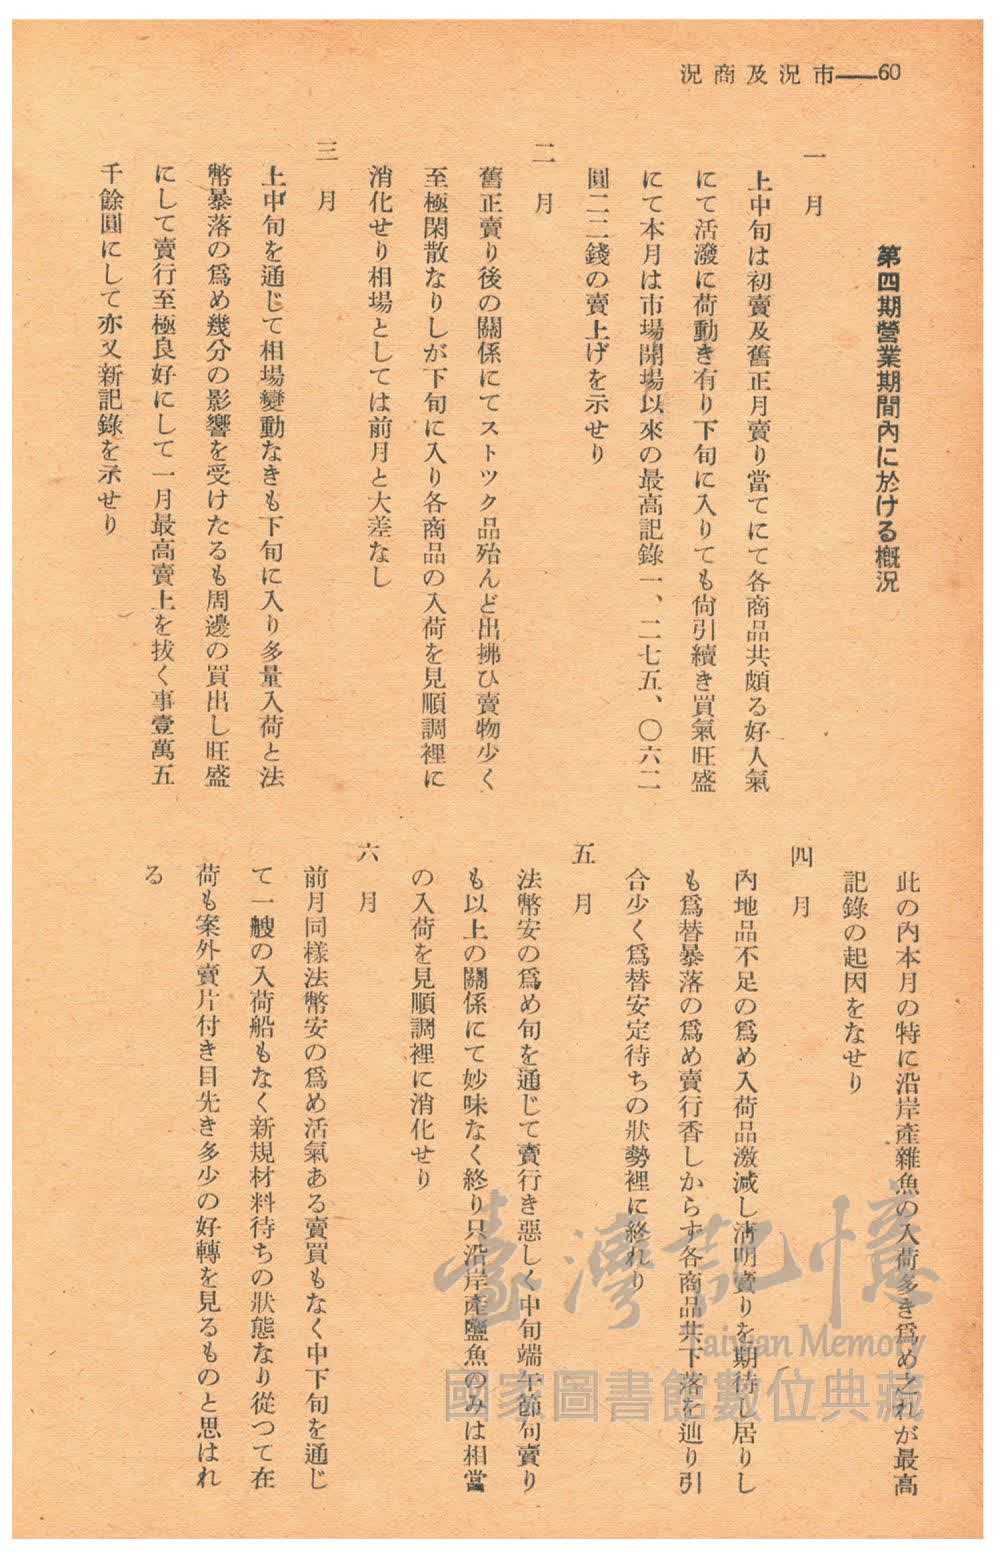 60——市況及商況
第四期營業期間內に於ける概況
一月
上中旬は初賣及舊正月賣り當てにて各商品共頗る好人氣
にて活潑に荷動き有り下旬に入りても尙引續き買氣旺盛
にて本月は市場開場以來の最高記錄一、二七五、〇六二
圓二二錢の賣上げを示せり
二月
舊正賣り後の關係にてストツク品殆んど出拂ひ賣物少く
至極閑散なりしが下旬に入り各商品の入荷を見順調裡に
消化せり相場としては前月と大差なし
三月
上中旬を通じて相場變動なきも下旬に入り多量入荷と法
幣暴落の爲め幾分の影響を受けたるも周邊の買出し旺盛
にして賣行至極良好にして一月最高賣上を拔く事壹萬五
千餘圓にして亦又新記錄を示せり
此の內本月の特に沿岸產雜魚の入荷多き爲め之れが最高
記錄の起因をなせり
四月
內地品不足の爲め入荷品激減し淸明賣りを期待し居りし
も爲替暴落の爲め賣行香しからず各商品共下落を辿り引
合少く爲替安定待ちの狀勢裡に終れり
五月
法幣安の爲め旬を通じて賣行き惡しく中旬端午節句賣り
も以上の關係にて妙味なく終り只沿岸產鹽魚のみは相當
の入荷を見順調裡に消化せり
六月
前月同樣法幣安の爲め活氣ある賣買もなく中下旬を通じ
て一艘の入荷船もなく新規材料待ちの狀態なり從つて在
荷も案外賣片付き目先き多少の好轉を見るものと思はれ
る
臺灣記憶
Taiwan Memory
國家圖書館數位典藏